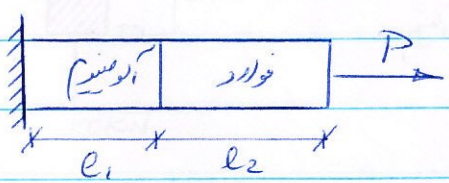 P
آلومینیوم فولاد
l₁ l₂